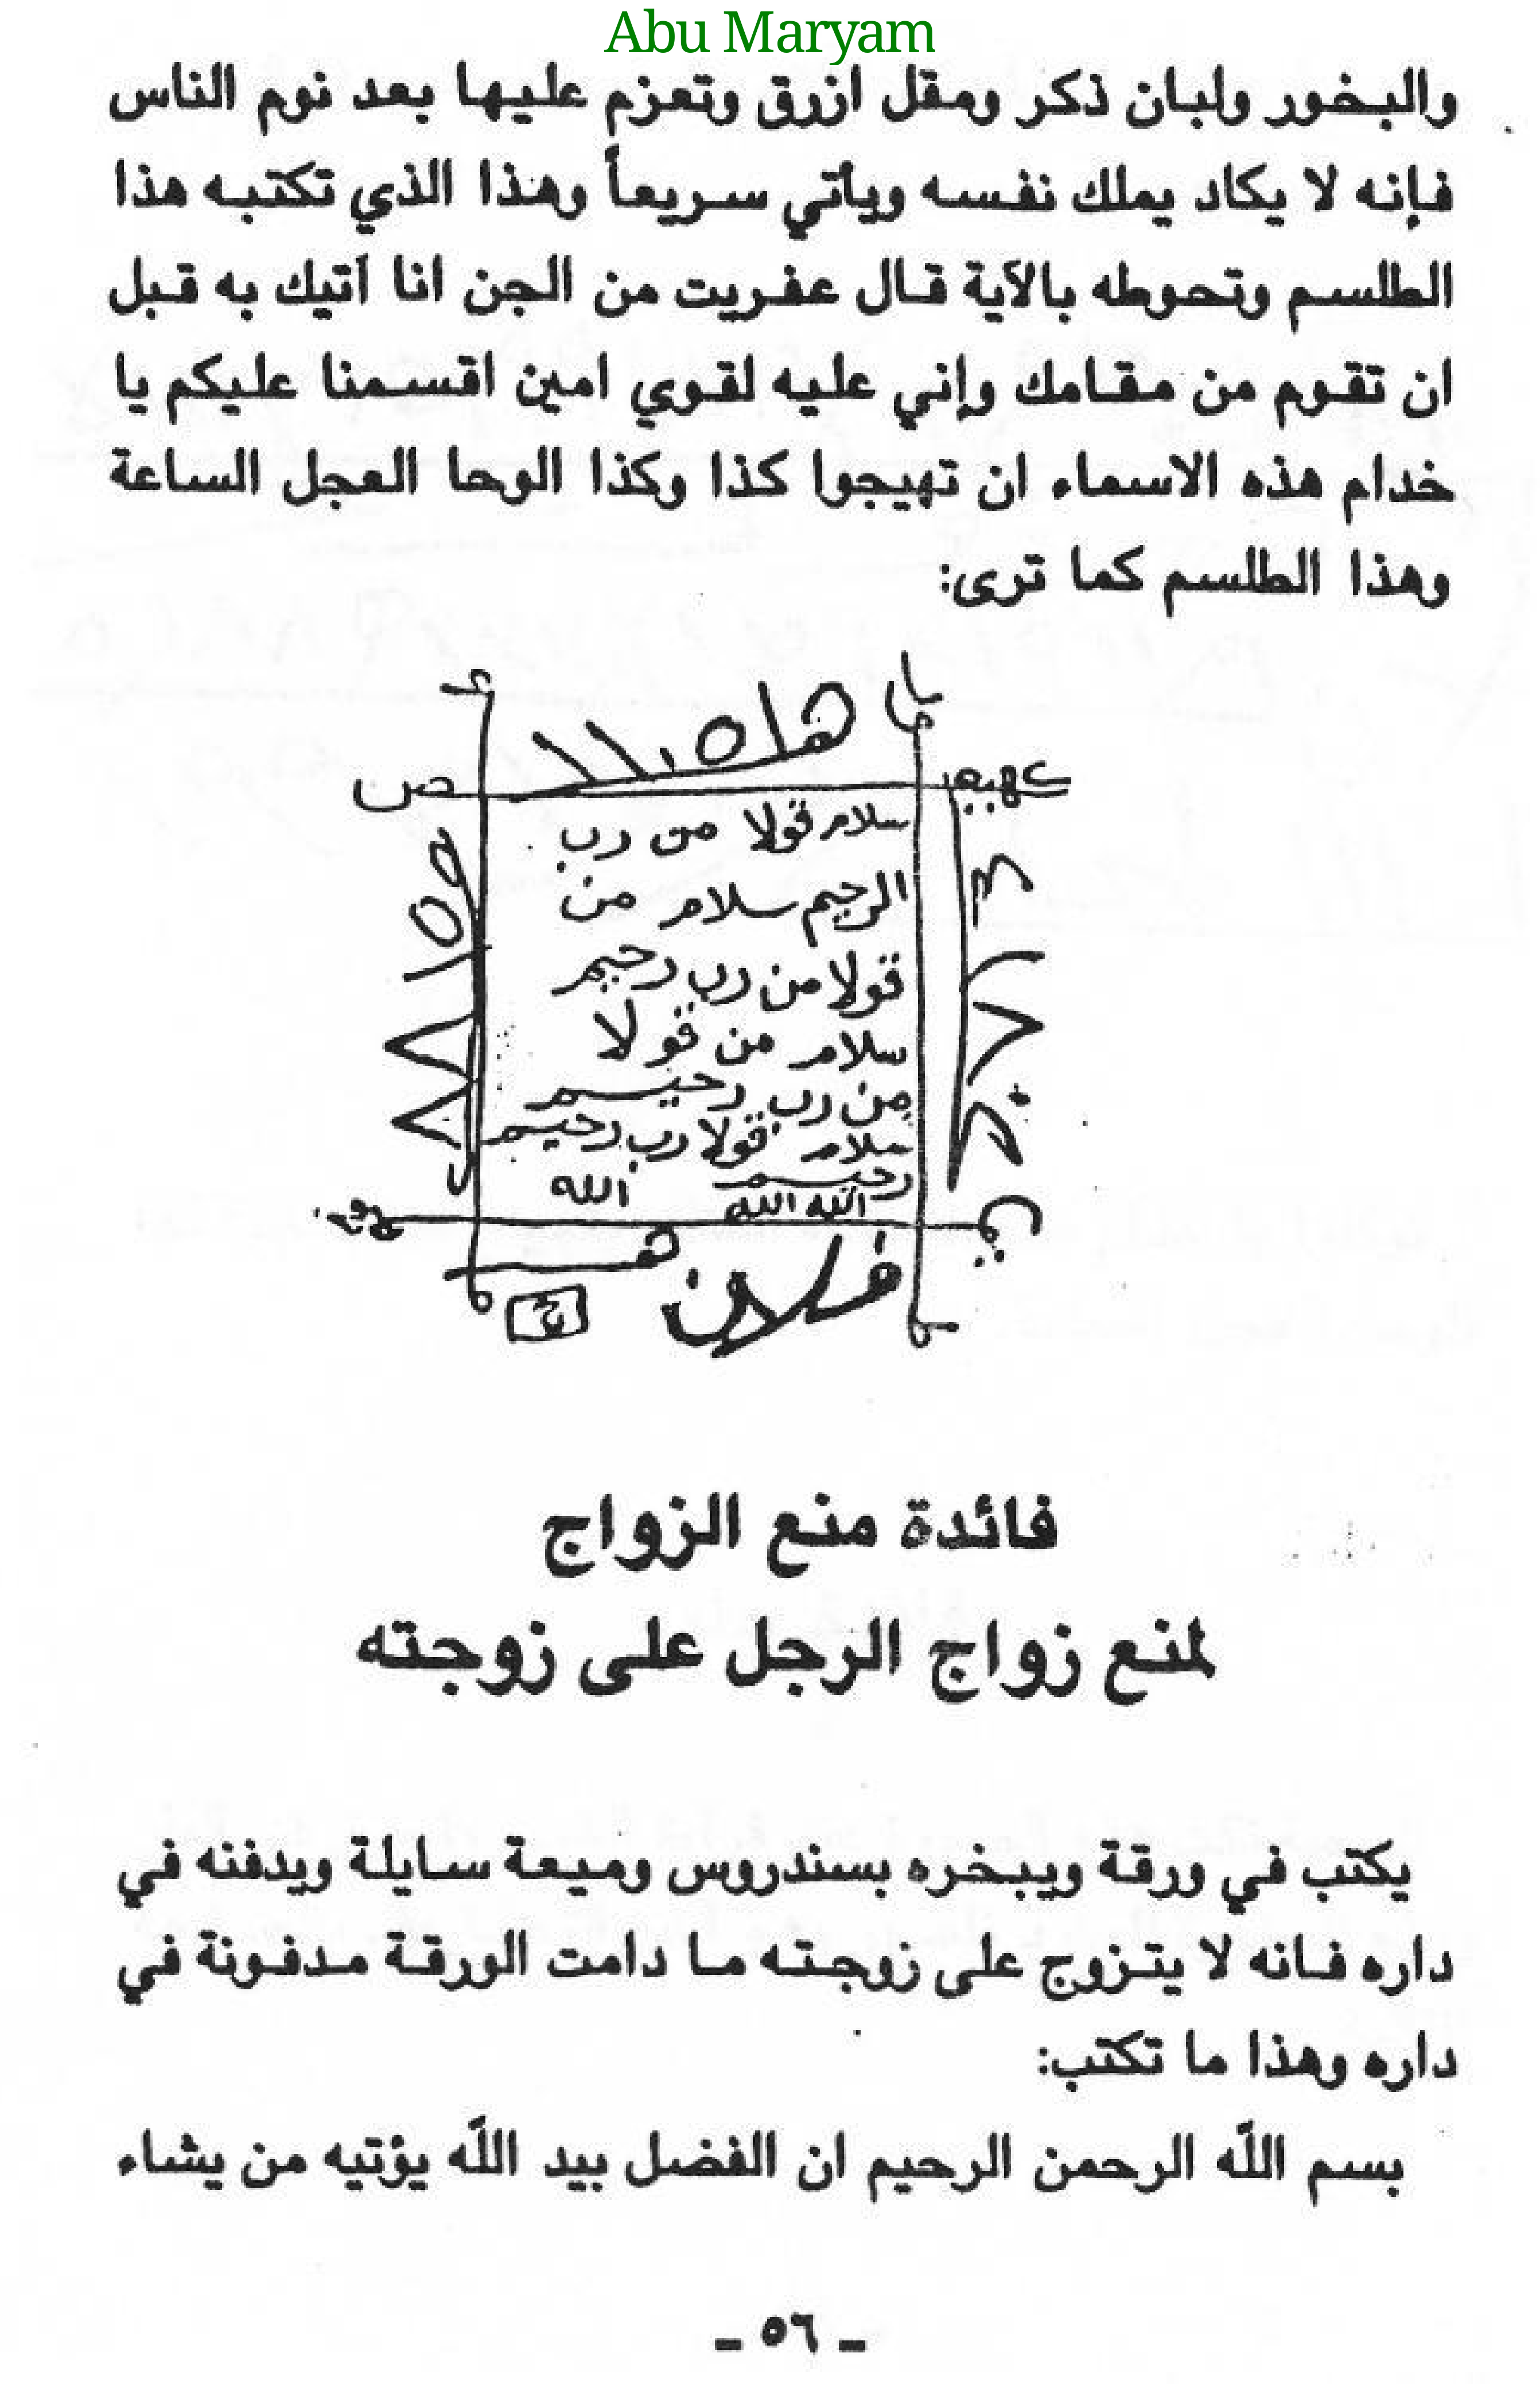 Abu Maryam
والبخور ولبان ذكر ومقل ازرق وتعزم عليها بعد نوم الناس
فإنه لا يكاد يملك نفسه ويأتي سريعاً وهذا الذي تكتبه هذا
الطلسم وتحوطه بالآية قال عفريت من الجن انا آتيك به قبل
ان تقوم من مقامك وإني عليه لقوي امين اقسمنا عليكم يا
خدام هذه الاسماء ان تهيجوا كذا وكذا الوحا العجل الساعة
وهذا الطلسم كما ترى:
سلام قولا من رب
الرحيم سلام من
قولا من رب رحيم
سلام من قولا
من رب رحيم
سلام قولا رب رحيم
رحيم
الله الله الله
فلان
فائدة منع الزواج
لمنع زواج الرجل على زوجته
يكتب في ورقة ويبخره بسندروس وميعة سايلة ويدفنه في
داره فانه لا يتزوج على زوجته ما دامت الورقة مدفونة في
داره وهذا ما تكتب:
بسم اللّه الرحمن الرحيم ان الفضل بيد اللّه يؤتيه من يشاء
ـ ٥٦ ـ